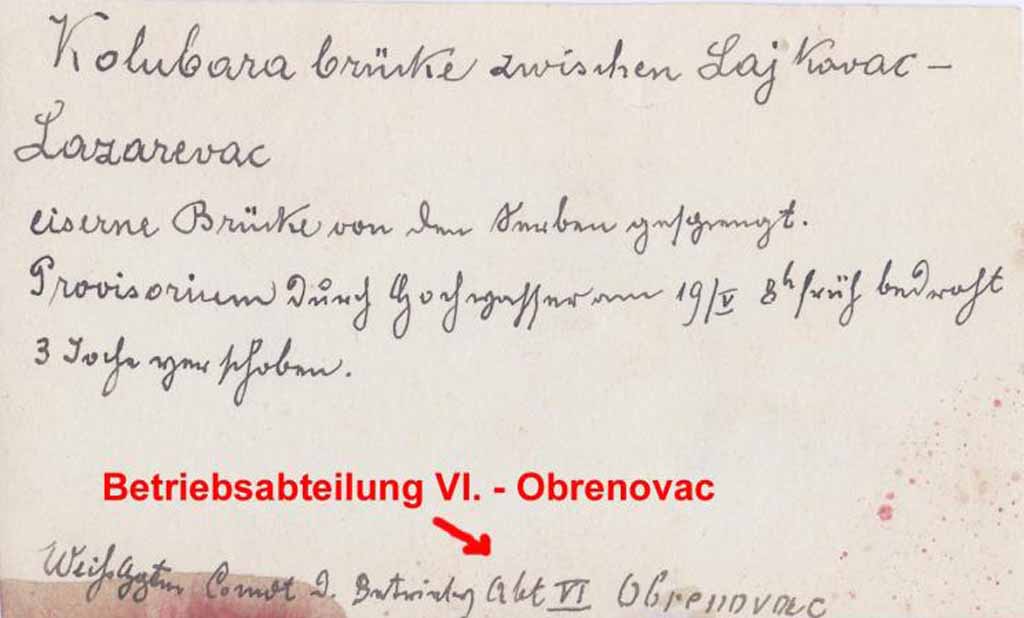 Kolubara brücke zwischen Lajkovac –
Lazarevac
eiserne Brücke von den Serben gesprengt.
Provisorium durch Hochwasser am 19/V 8h früh bedroht
3 Joche verschoben.
Betriebsabteilung VI. - Obrenovac
Comdt d. Betriebs Abt VI Obrenovac